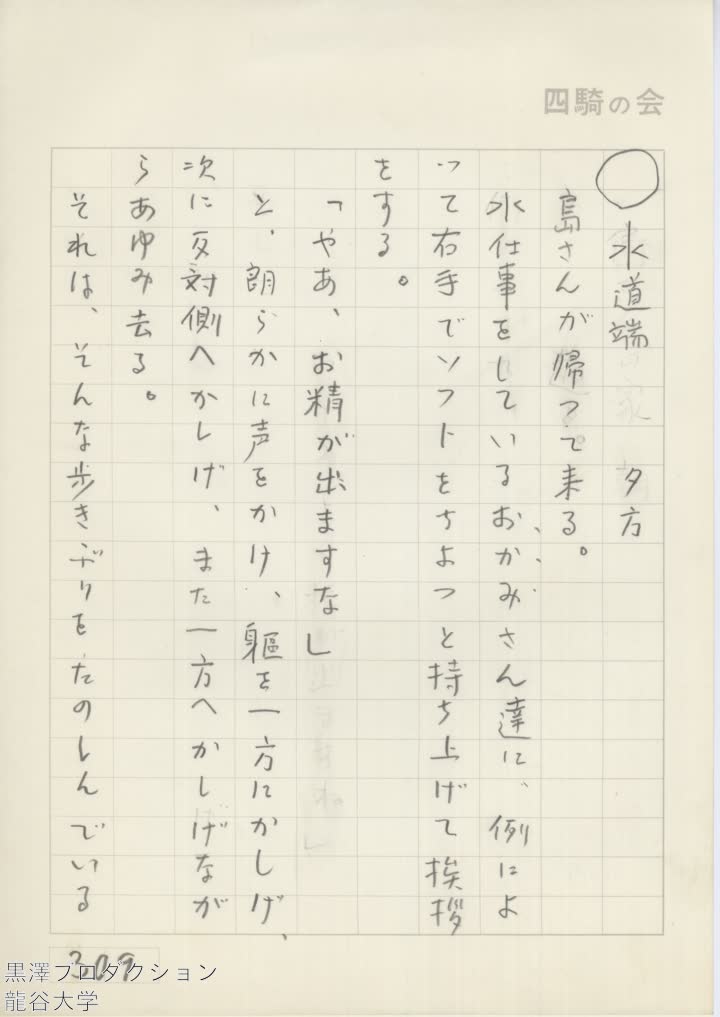 四騎の会
○ 水道端 夕方
島さんが帰って来る。
水仕事をしているおかみさん達に、例によ
って右手でソフトをちょっと持ち上げて挨拶
をする。
「やあ、お精が出ますなし」
と、朗らかに声をかけ、軀を一方にかしげ、
次に反対側へかしげ、また一方へかしげなが
らあゆみ去る。
それは、そんな歩きぶりをたのしんでいる
309
黒澤プロダクション
龍谷大学